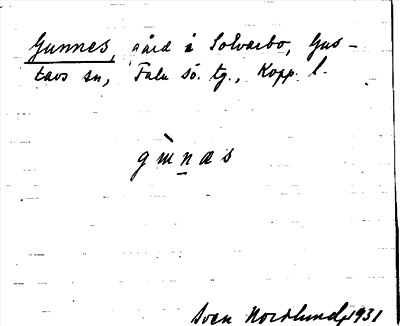 Gunnes, gård i Solvarbo, Gus-
tavs sn, Falu sö. tg., Kopp. l.
gùnæs
Sven Nordlund, 1931